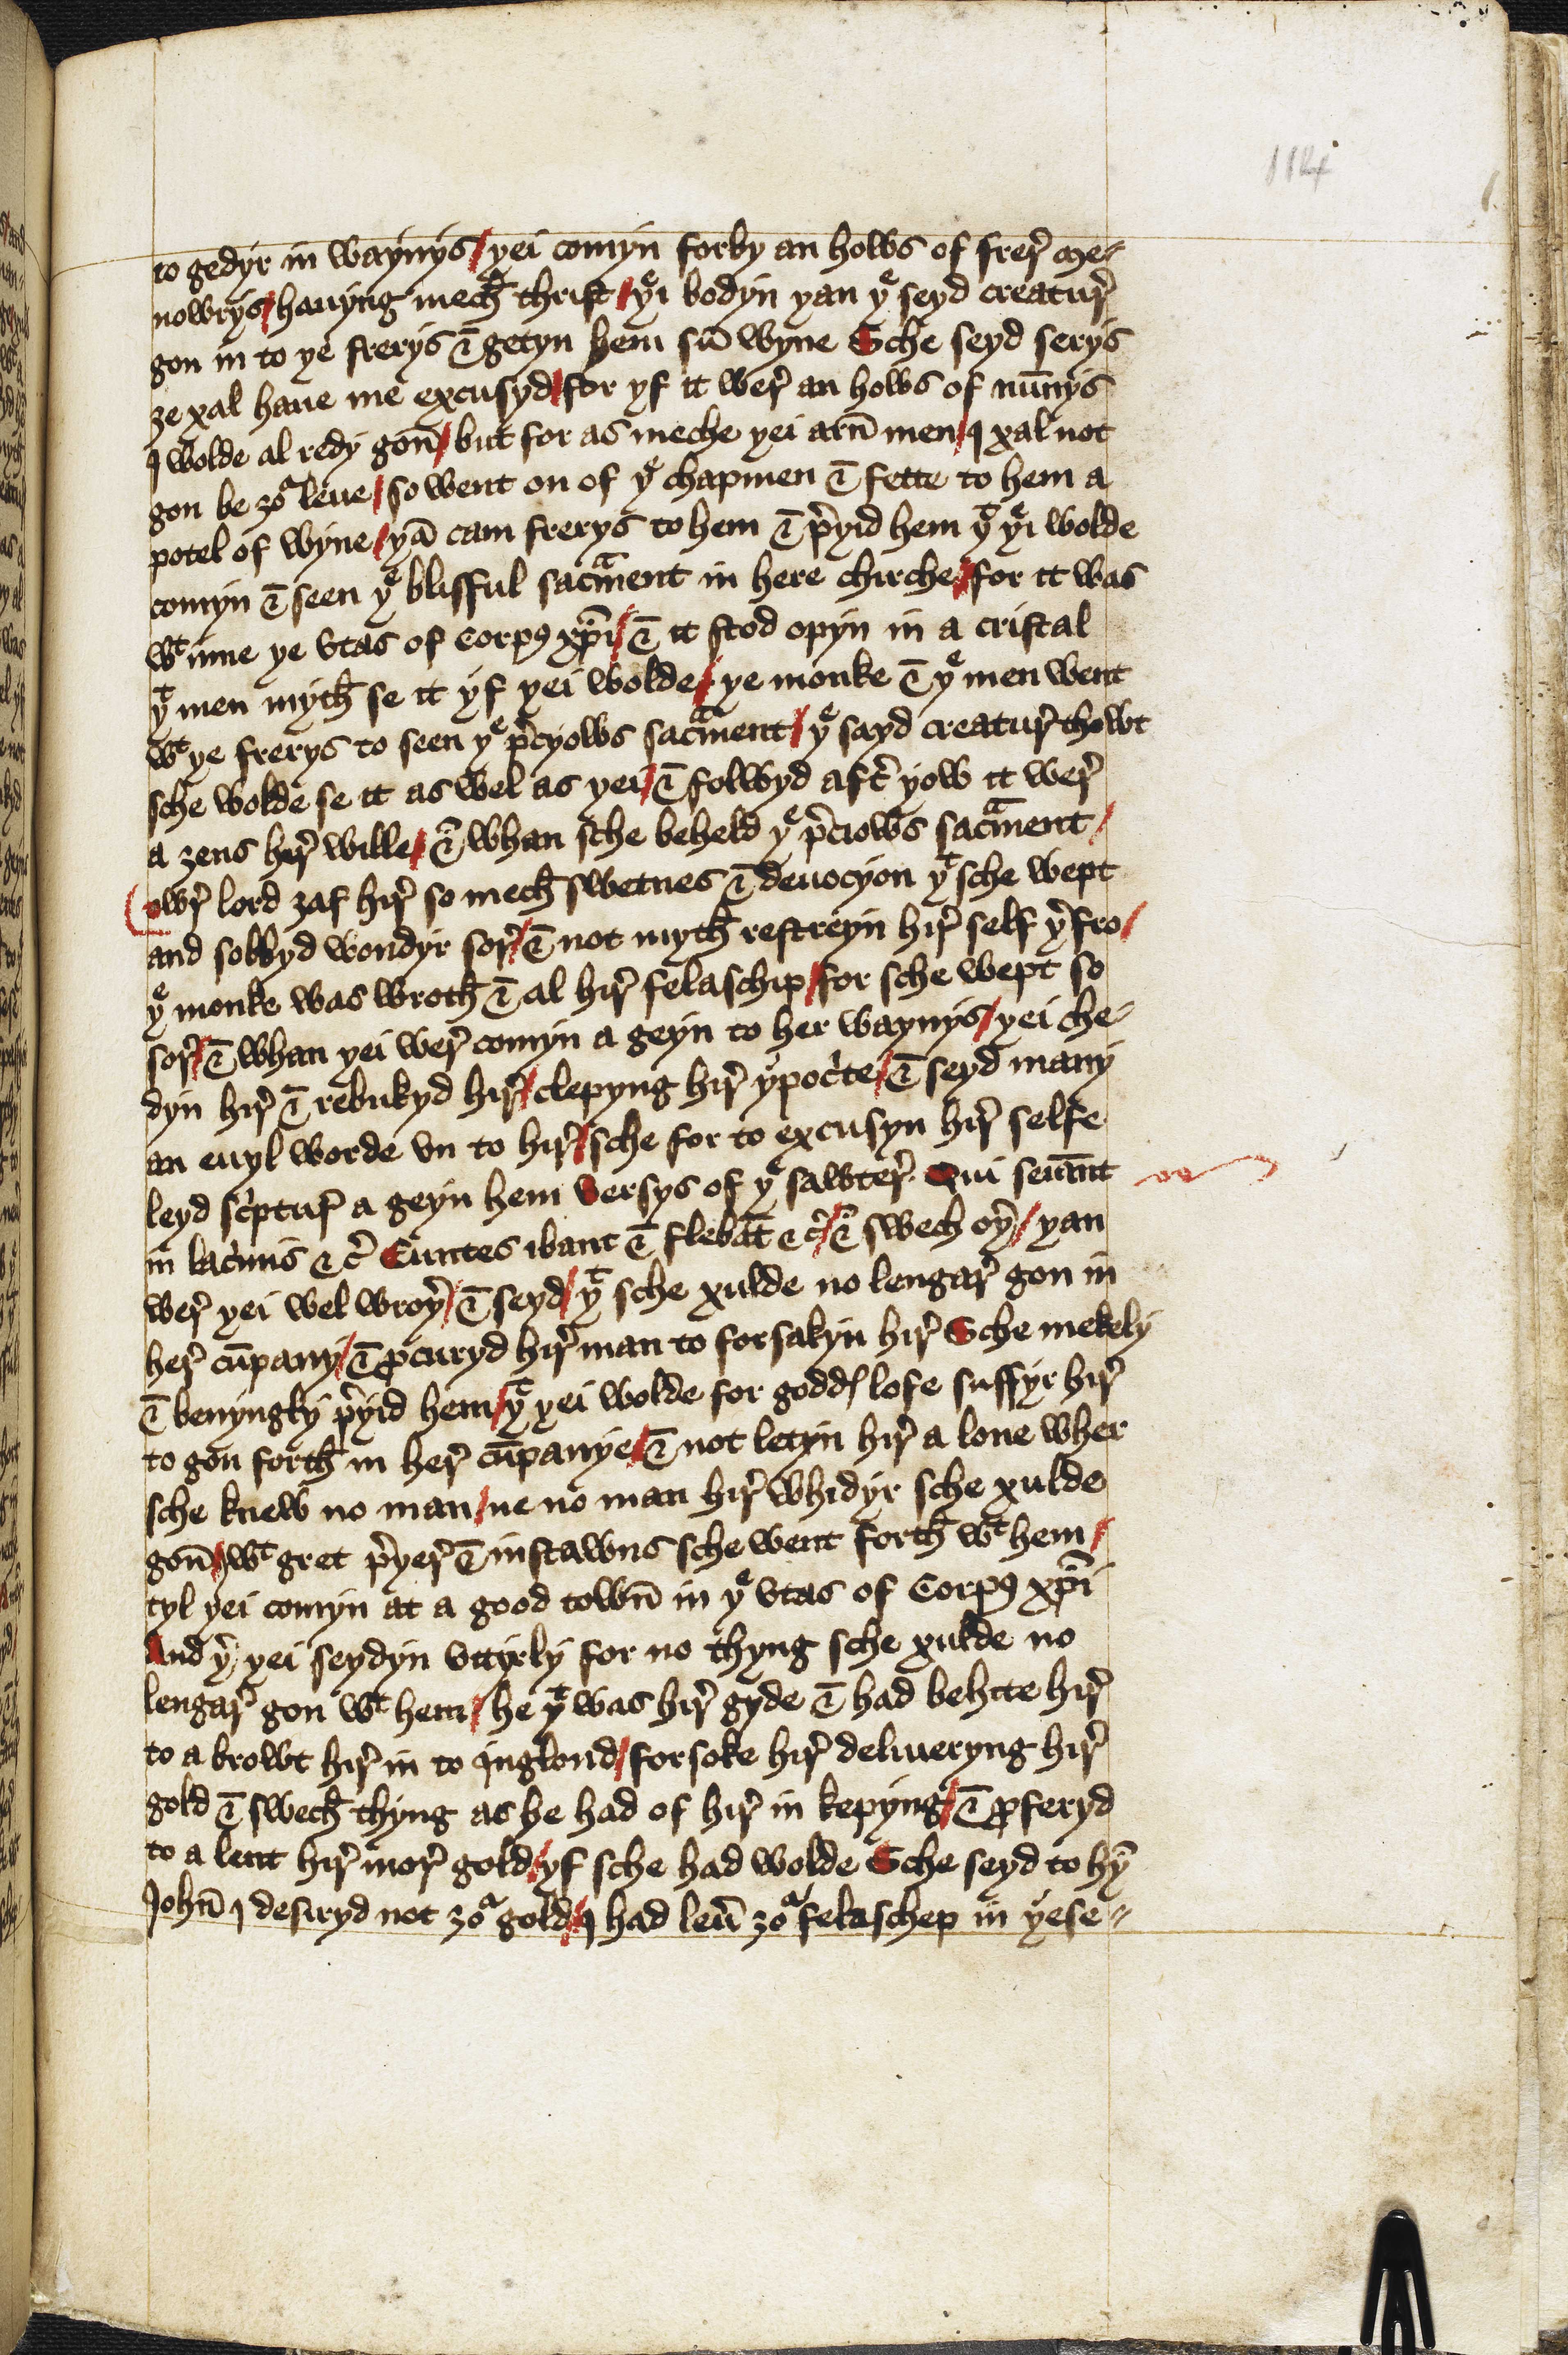 114
to gedyr in waynys / yei comyn forby an hows of frer̛ me⸗
nowrys / hauyng mech̄ thrist / yͤi bodyn yan yͤ seyd creatur̛
gon in to ye frerys & getyn hem sū wyne Sche seyd serys
ȝe xal haue me excusyd / for yf it wer̛ an hows of nūnys
I wolde al redy gon̄ / but for as meche yei arn̄ men / I xal not
gon be ȝoᵃ leue / so went on of yͤ chapmen & fette to hem a
potel of wyne / yā cam frerys to hem & p̛yid hem yͭ yͤi wolde
comyn & seen yͤ blisful sacᵃment in here chirche / for it was
wͭ inne ye vtas of Corpꝰ xp̄i / & it stod opyn in a cristal
yͭ men myth̄ se it yf yei wolde / ye monke & yͤ men went
wͭ ye frerys to seen yͤ p̛cyows sacᵃment / yͤ sayd creatur̛ thowt
sche wolde se it as wel as yei / & folwyd aft̛ yow it wer̛
a ȝens her̛ wille / & whan sche beheld yͤ p̛ciows sacᵃment /
owr̛ lord ȝaf hir̛ so mech̄ swetnes & deuocyon yͭ sche wept
and sobbyd wondyr sor̛ / & not myth̄ restreyn hir̛ self y̛fro /
yͤ monke was wroth̄ & al hir̛ felaschip / for sche wept so
sor̛ / & whan yei wer̛ comyn a geyn to her waynys / yei che⸗
dyn hir̛ & rebukyd hir̛ / clepyng hir̛ ypoc̛te / & seyd many
an euyl worde vn to hir̛ / sche for to excusyn hir̛ selfe
leyd sc̛ptur̛ a geyn hem versys of yͤ sawter̛ Qui semīnt
in lac̛mis & c̛ Euntes ibant & flebāt & c̛ / & swech oy̛ / yan
wer̛ yei wel wroy̛ / & seyd / yͭ sche xulde no lengar̛ gon in
her̛ cūpany / & ꝓcuryd hir̛ man to forsakyn hir̛ Sche mekely
& benyngly p̛yid hem / yͭ yei wolde for goddꝭ lofe suffyr hir̛
to gon forth̄ in her̛ cūpanye / & not letyn hir̛ a lone wher
sche knew no man / ne no man hir̛ whidyr sche xulde
gon̄ / wͭ gret p̛yer̛ & instawns sche went forth̄ wͭ hem /
tyl yei comyn at a good town̄ in yͤ vtas of Corpꝰ xp̄i
And y̛ yei seydyn vttyrly for no thyng sche xulde no
lengar̛ gon wͭ hem / he yͭ was hir̛ gyde & had behitte hir̛
to a browt hir̛ in to Inglond / forsoke hir̛ deliueryng hir̛
gold & swech̄ thyng as he had of hir̛ in kepyng / & ꝓferyd
to a lent hir̛ mor̛ gold / yf sche had wolde Sche seyd to hȳ
Johñ I desiryd not ȝoᵃ gold / I had leư ȝoᵃ felaschep in yese⸗